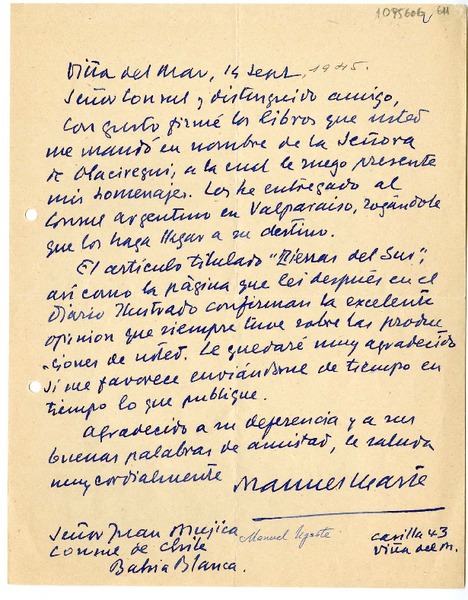 1095606 611
Viña del Mar, 14 Sept, 1945.
Señor Consul y distinguido amigo,
Con gusto firmé los libros que usted
me mandó en nombre de la Señora
de Olaciregui, a la cual le ruego presente
mis homenajes. Los he entregado al
Consul argentino en Valparaíso, rogándole
que los haga llegar a su destino.
El artículo titulado "Tierras del Sur",
así como la página que leí después en el
Diario Ilustrado confirman la excelente
opinion que siempre tuve sobre las produc
-ciones de usted. Le quedaré muy agradecido
si me favorece enviándome de tiempo en
tiempo lo que publique.
Agradecido a su deferencia y a sus
buenas palabras de amistad, le saluda
muy cordialmente
Manuel Ugarte
Señor Juan Mujica
Consul de Chile
Bahia Blanca.
Manuel Ugarte
casilla 43
Viña del M.